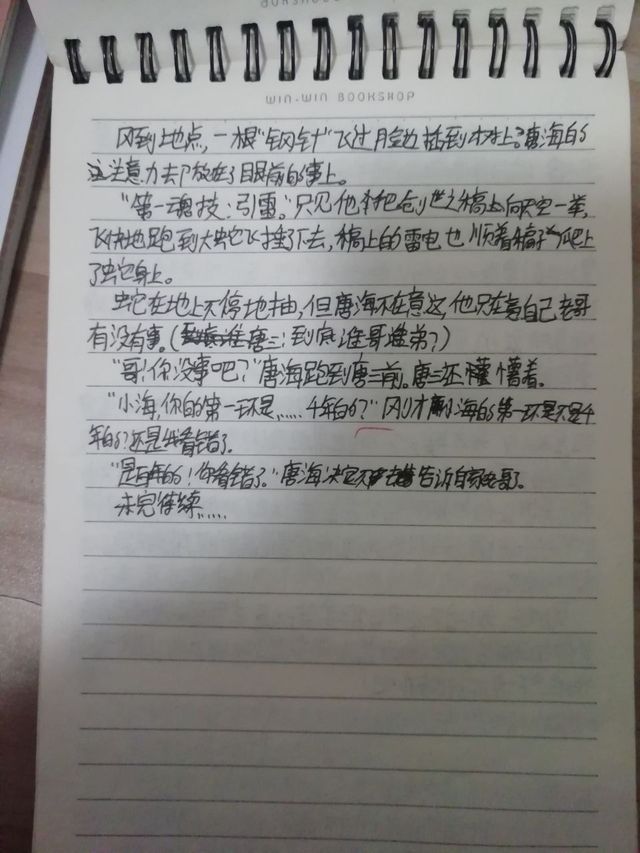 WIN-WIN BOOKSHOP
刚到地点，一根“钢针”飞过脸边插到树上。唐海的
注意力去放在了眼前的事上。
“第一魂技：引雷。”只见他把创世之稿向天空一举，
飞快地跑到大蛇飞挂了下去，稿上的雷电也顺着稿子爬上
了蛇身上。
蛇在地上不停地抽，但唐海不在意这，他只在意自己老哥
有没有事。（唐三：到底谁哥谁弟？）
“哥！你没事吧？”唐海跑到唐三前。唐三还懵懵着。
“小海，你的第一环是……千年的？”刚才小海的第一环是不是千
年的？还是我看错了。
“是百年的！你看错了。”唐海决定不告诉自家老哥。
未完待续……